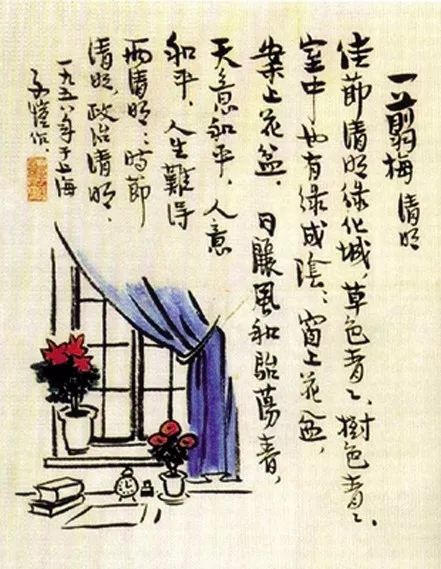 一翦梅 清明
佳節清明綠化城，草色青々、樹色青々、
室中也有綠成陰：窗上花盆、
案上花盆。日麗風和駘蕩春，
天意和平，人意
和平，人生難得
兩清明：時節
清明，政治清明。
一九五八年于上海
子愷作